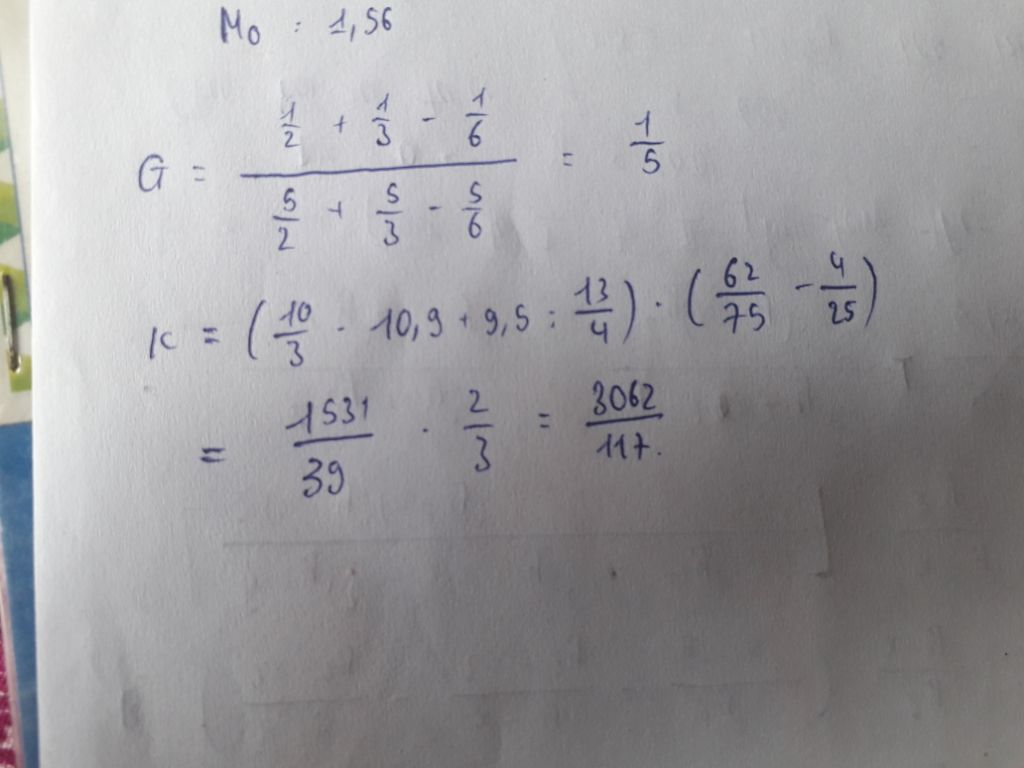 M₀ : 1,56
G = (1/2 + 1/3 - 1/6) / (5/2 + 5/3 - 5/6) = 1/5
K = (10/3 · 10,9 + 9,5 : 13/4) · (62/75 - 4/25)
= 1531/39 · 2/3 = 3062/117.